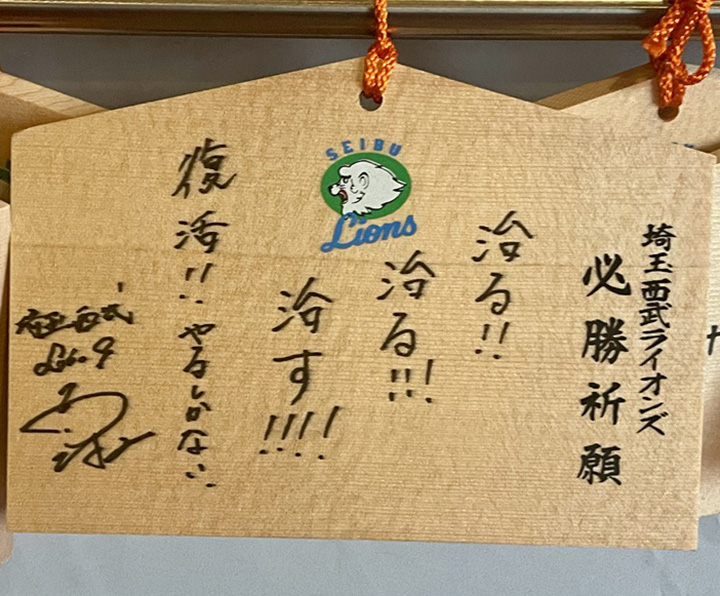 埼玉西武ライオンズ
必勝祈願
SEIBU
Lions
治る!!
治る!!!
治す!!!!
復活!! やるしかない!!
埼玉西武